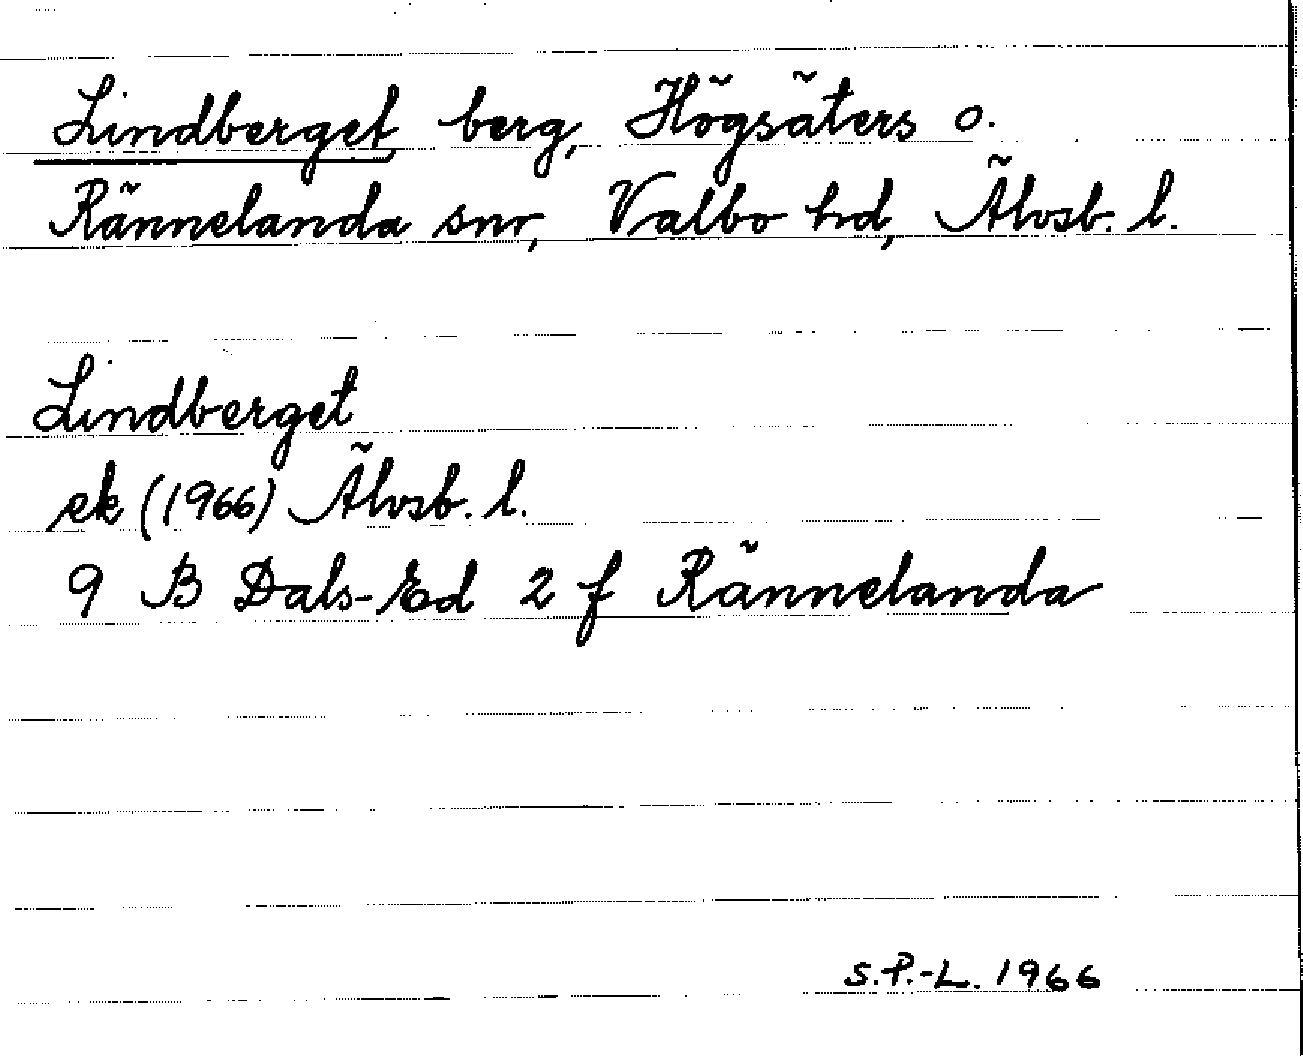 Lindberget, berg, Högsäters o.
Rännelanda snr, Valbo hd, Älvsb. l.
Lindberget
ek (1966) Älvsb. l.
9 B Dals-Ed 2 f Rännelanda
S.P.-L. 1966